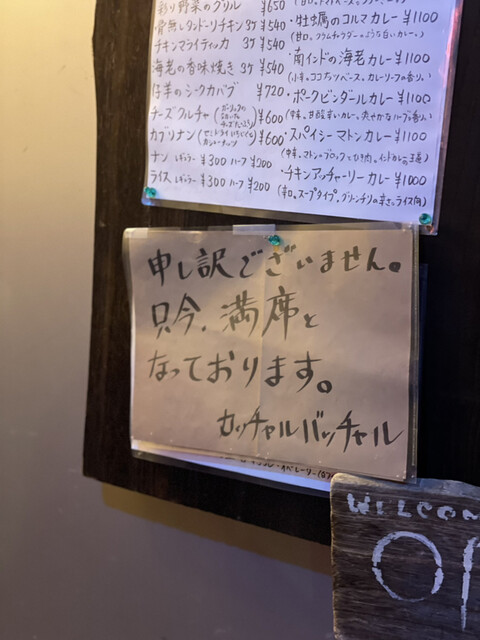 彩り野菜のグリル ¥650
骨無しタンドーリチキン 3ケ ¥540
チキンマライティッカ 3ケ ¥540
海老の香味焼き 3ケ ¥540
仔羊のシークカバブ ¥720
チーズクルチャ ¥600
カブリナン ¥600
ナン レギュラー ¥300 ハーフ ¥200
ライス レギュラー ¥300 ハーフ ¥200
・牡蠣のコルマカレー ¥1100
(甘口。クラムチャウダーのような白いカレー。)
・南インドの海老カレー ¥1100
(小辛。ココナッツベース。カレーリーフの香り。)
・ポークビンダールカレー ¥1100
・スパイシーマトンカレー ¥1100
・チキンアッチャーリーカレー ¥1000
(辛口。スープタイプ。グリーンチリの辛さ。ライス向)
申し訳ございません。
只今、満席と
なっております。
カッチャルバッチャル
WELCOM
OP